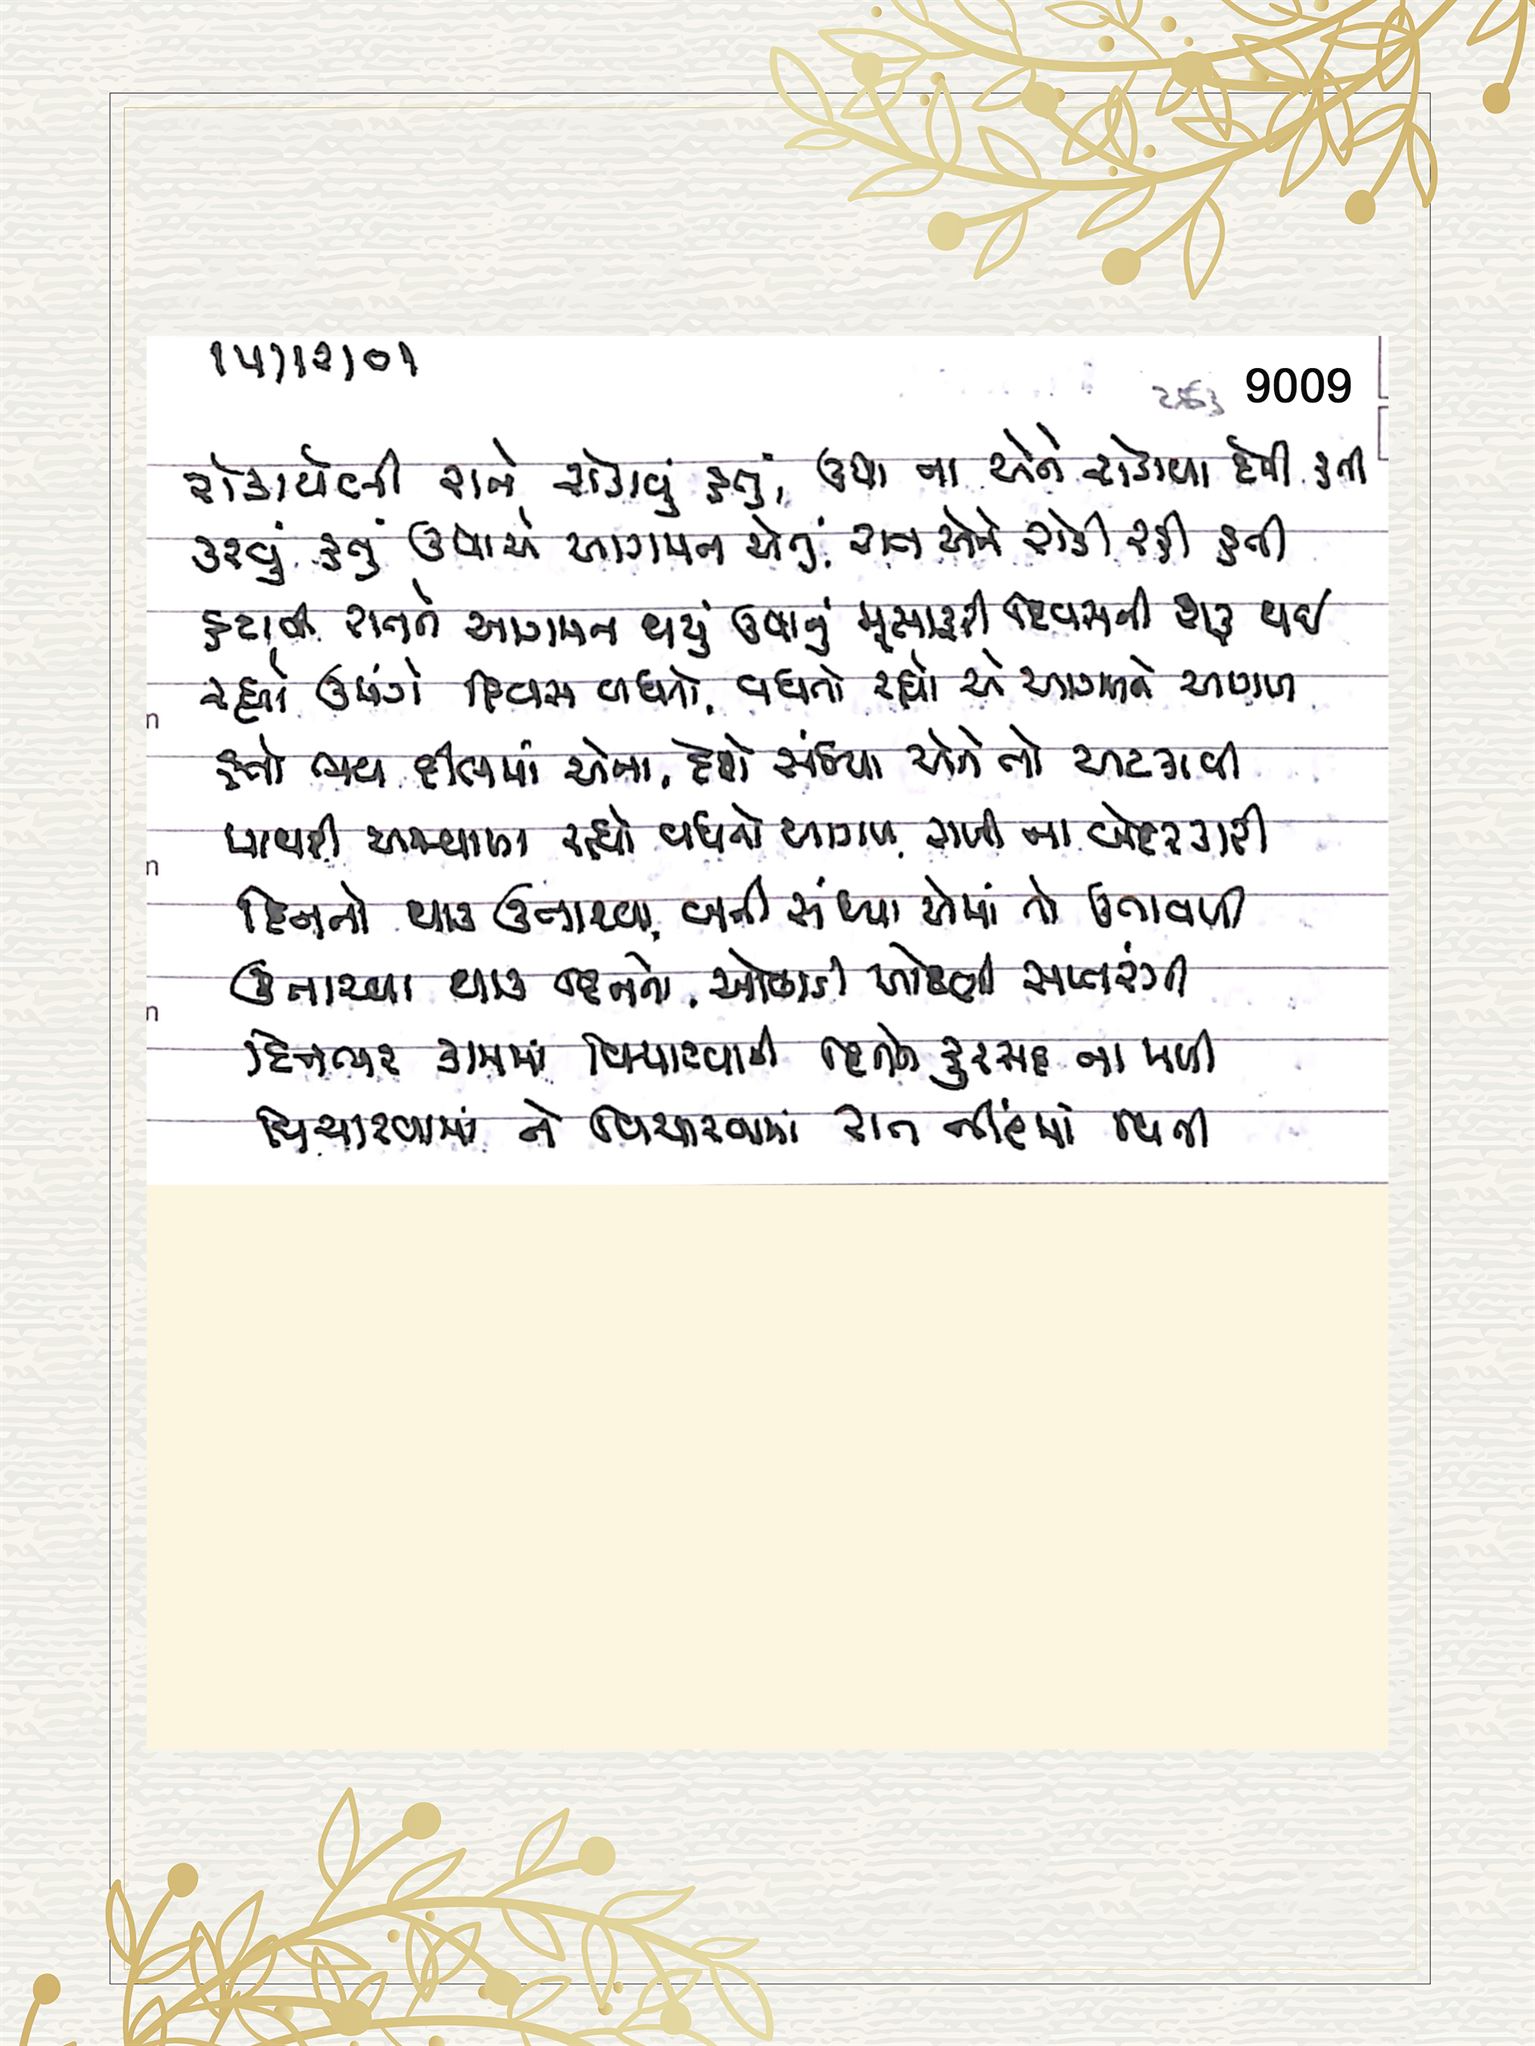 ૧૫)૧૨)૦૧
9009
રોકાયેલી રાતે રોકાવું હતું, ઉષા ના એને રોકાવા દેવી હતી
કરવું હતું ઉષાએ આગમન એનું, રાત એને રોકી રહી હતી
હટાવી રાતને આગમન થયું ઉષાનું મુસાફરી દિવસની શરૂ થઈ
રહ્યો ઉમંગે દિવસ વધતો, વધતો રહ્યો એ આગળને આગળ
હતો ભય દીલમાં એના, દેશે સંધ્યા એને તો અટકાવી
રહ્યો વધતો આગળ, રાખી ના બેદરકારી
દિનનો થાક ઉતારવા, બની સંધ્યા એમાં તો ઉતાવળી
ઉતારવા થાક દિનનો, ઓઢાડી ઓઢણી સપ્તરંગી
દિનભર કામમાં વિચારવાની દિનને ફુરસદ ના મળી
વિચારવામાં ને વિચારવામાં રાત નીંદમાં વિતી